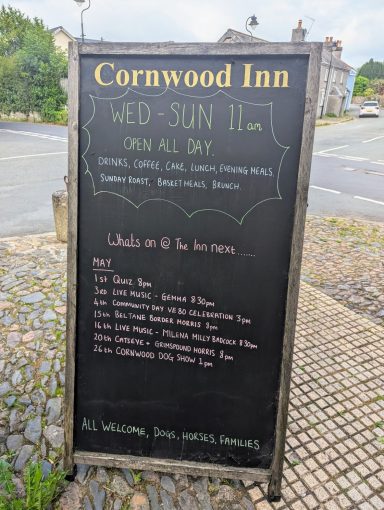 Cornwood Inn
WED - SUN 11am
OPEN ALL DAY.
DRINKS, COFFEE, CAKE, LUNCH, EVENING MEALS,
SUNDAY ROAST, BASKET MEALS, BRUNCH.
Whats on @ The Inn next.......
MAY
1st QUIZ 8pm
3rd LIVE MUSIC - GEMMA 8 30pm
4th COMMUNITY DAY VE 80 CELEBRATION 3pm
15th BELTANE BORDER MORRIS 8pm
16th LIVE MUSIC - MILENA MILLY BABCOCK 8 30pm
20th CATSEYE + GRIMSPOUND MORRIS 8pm
26th CORNWOOD DOG SHOW 1pm
ALL WELCOME, DOGS, HORSES, FAMILIES